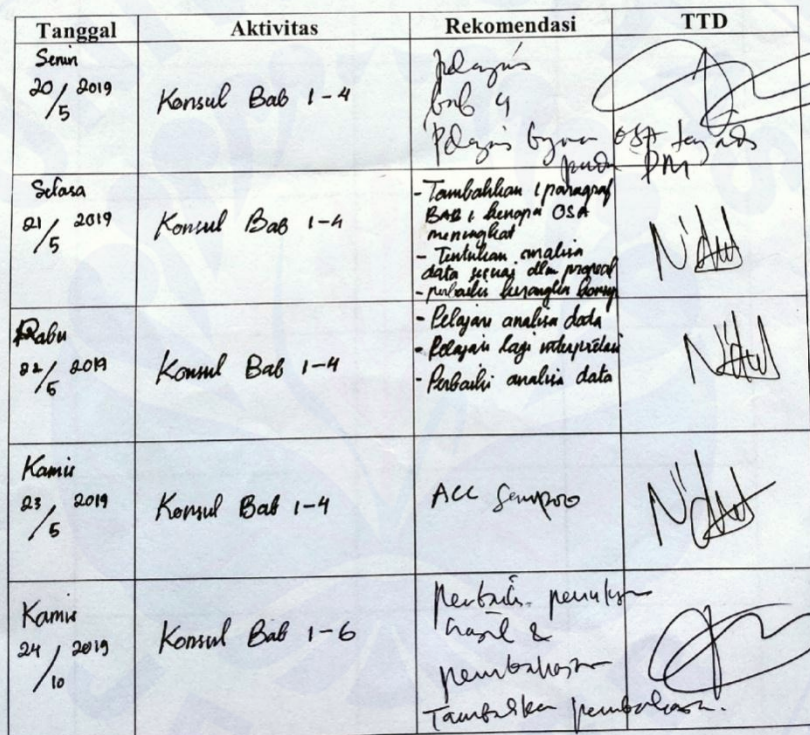 Tanggal Aktivitas Rekomendasi TTD
Senin
20/5 2019
Konsul Bab 1-4
pelajari
bab 4
Pelajari OSA
pada DM
Selasa
21/5 2019
Konsul Bab 1-4
- Tambahkan 1 paragraf
BAB 1 kenapa OSA
meningkat
- Tentukan analisa
data sesuai dlm proposal
- perbaiki kerangka konsep
Rabu
22/5 2019
Konsul Bab 1-4
- Pelajari analisa data
- Pelajari lagi interpretasi
- Perbaiki analisa data
Kamis
23/5 2019
Konsul Bab 1-4
ACC Sempro
Kamis
24/10 2019
Konsul Bab 1-6
perbaiki penulisan
hasil &
pembahasan
Tambahkan pembahasan.